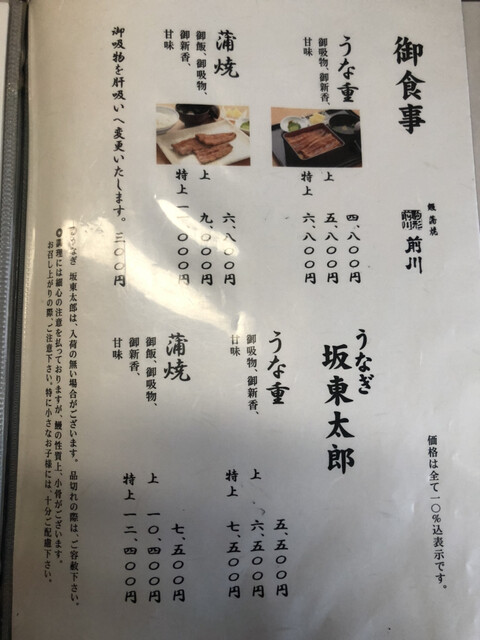 御食事
鰻蒲焼
駒形前川
前川
うな重
御吸物、御新香、
甘味
四、八〇〇円
上 五、八〇〇円
特上 六、八〇〇円
蒲焼
御飯、御吸物、
御新香、
甘味
六、八〇〇円
上 九、〇〇〇円
特上 一一、〇〇〇円
御吸物を肝吸いへ変更いたします。 三〇〇円
価格は全て一〇%込表示です。
うなぎ
坂東太郎
うな重
御吸物、御新香、
甘味
五、五〇〇円
上 六、五〇〇円
特上 七、五〇〇円
蒲焼
御飯、御吸物、
御新香、
甘味
七、五〇〇円
上 一〇、四〇〇円
特上 一二、四〇〇円
うなぎ 坂東太郎は、入荷の無い場合がございます。 品切れの際は、ご容赦下さい。
調理には細心の注意を払っておりますが、鰻の性質上、小骨がございます。
お召し上がりの際、ご注意下さい。特に小さなお子様には、十分ご配慮下さい。